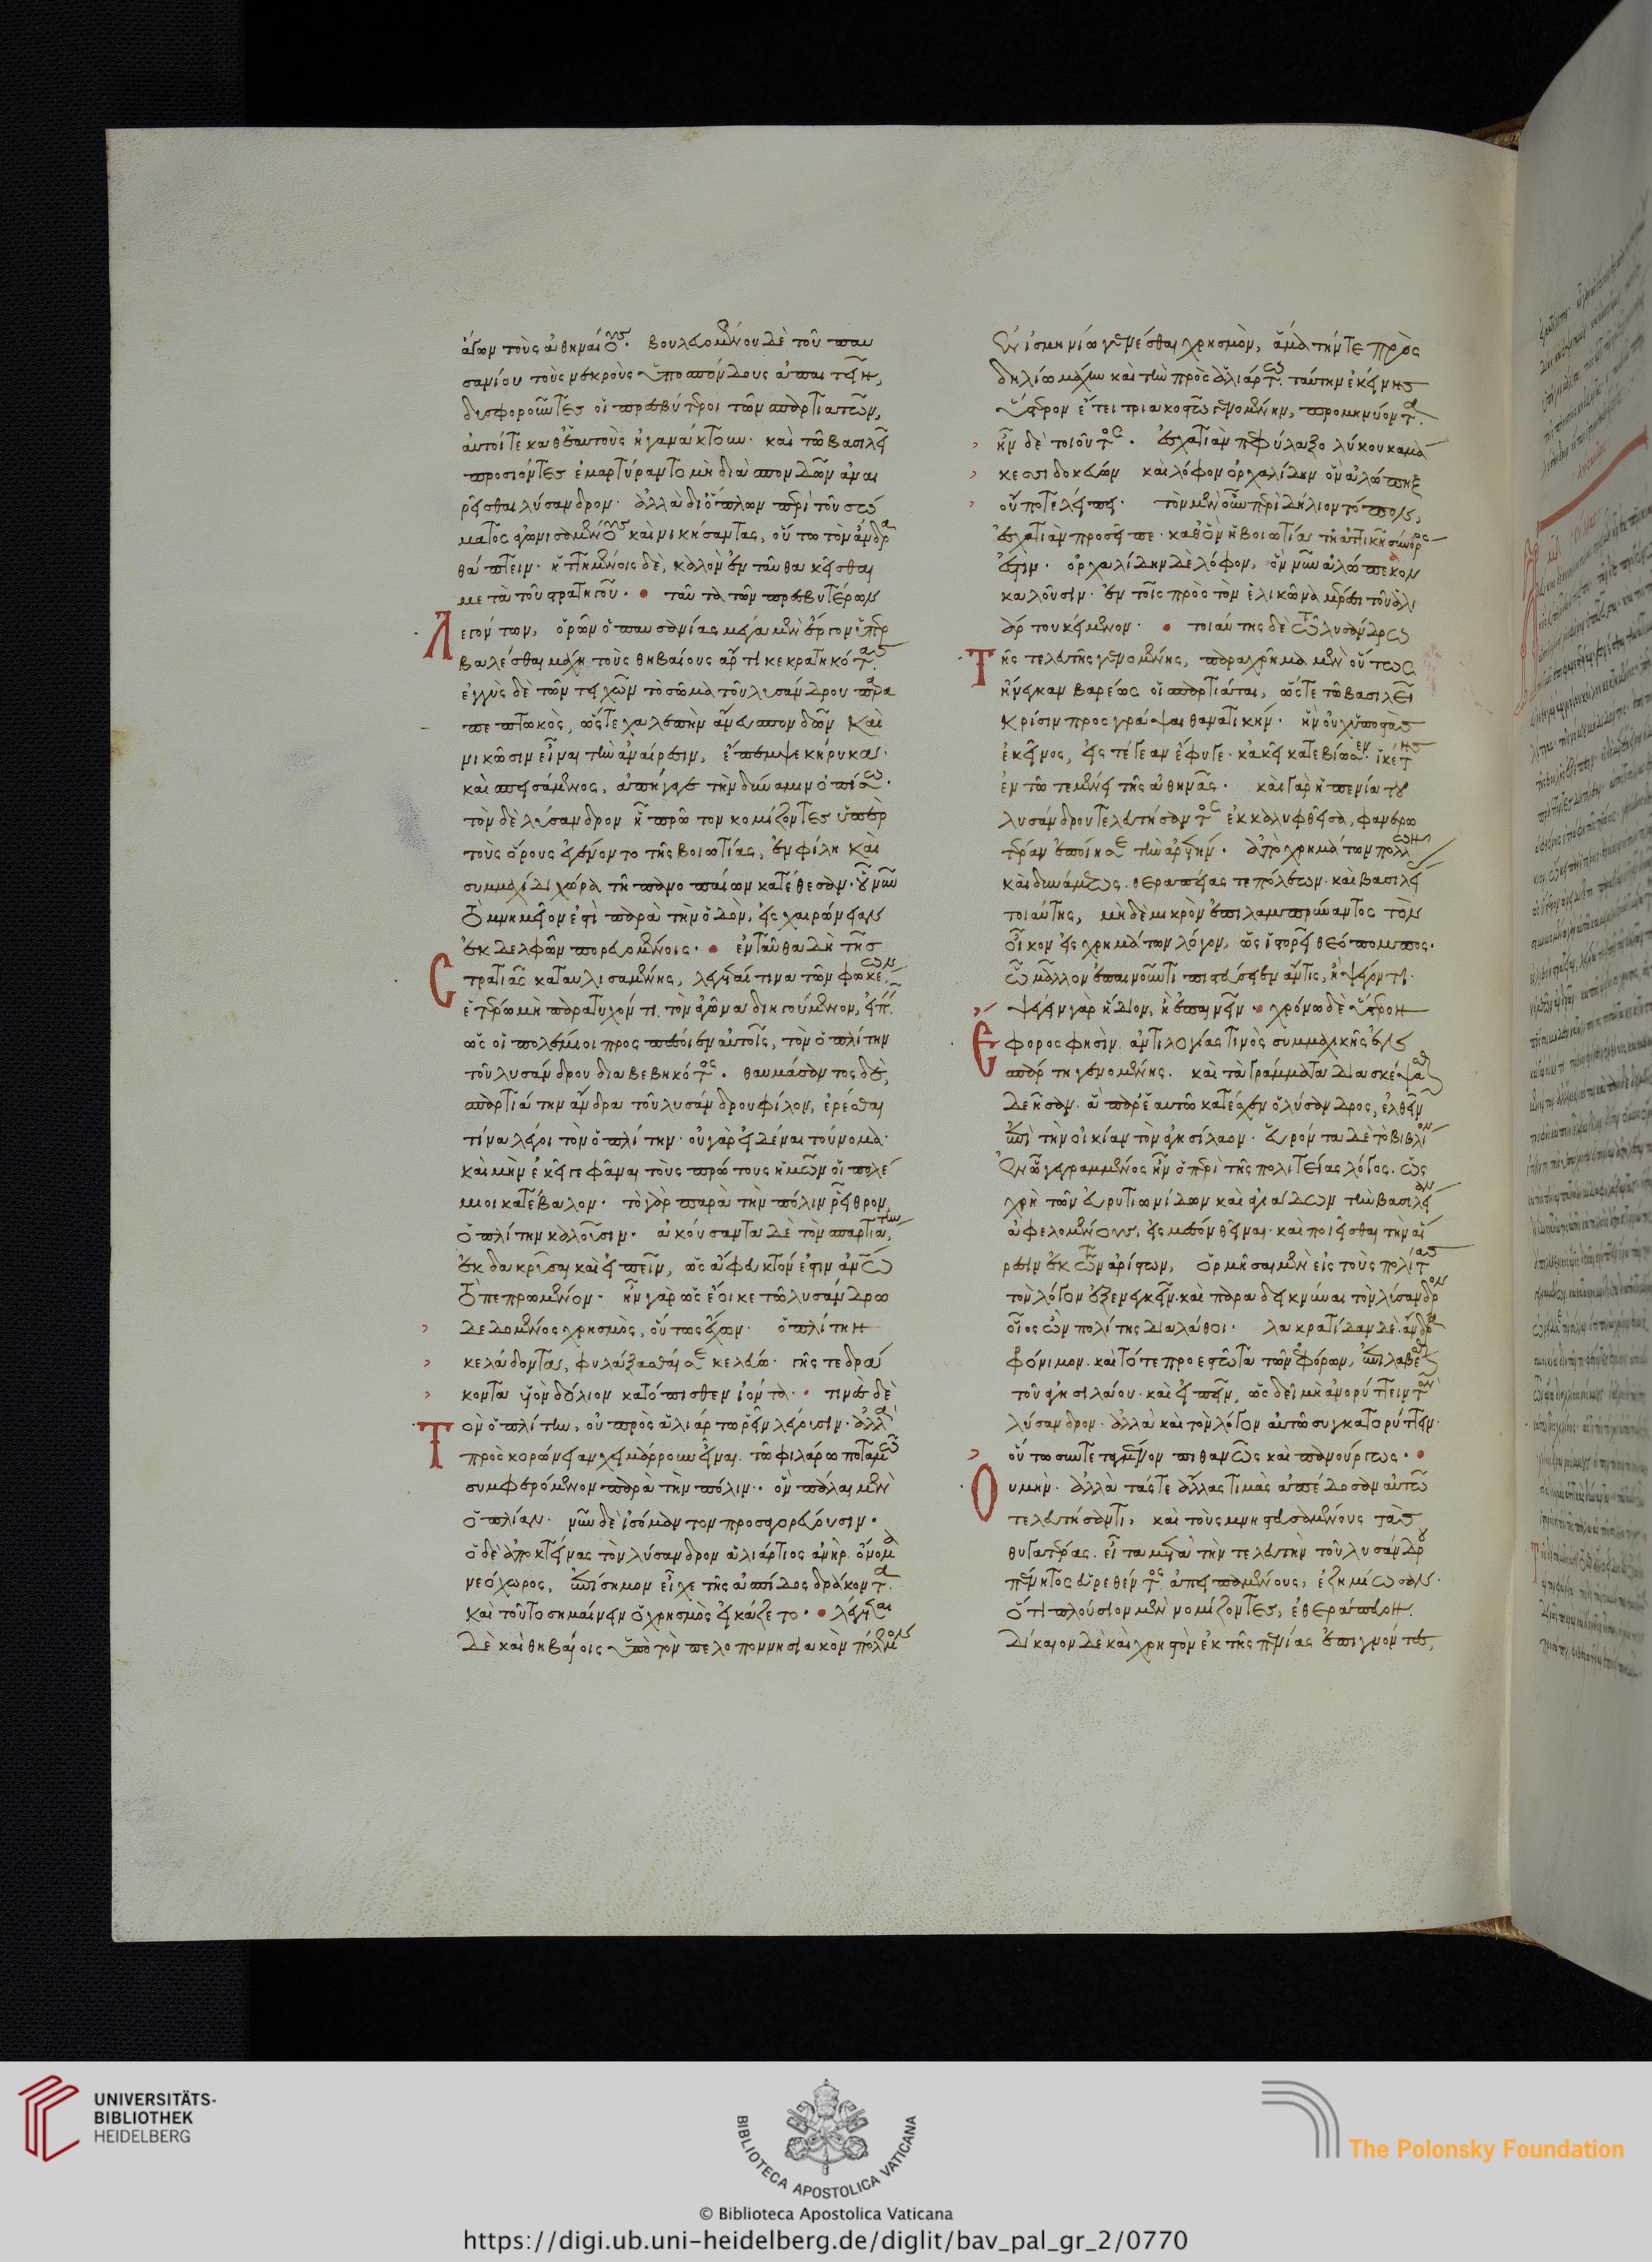 ἄγων τοὺς ἀθηναίους. βουλευομένου δὲ τοῦ παυ
σανίου τοὺς νεκροὺς ὑποσπόνδους ἀπαιτεῖν,
δυσφοροῦντες οἱ πρεσβύτεροι τῶν σπαρτιατῶν,
αὐτοί τε καθ' ἑαυτοὺς ἠγανάκτουν. καὶ τῶ βασιλεῖ
προσιόντες ἐμαρτύραντο μὴ διὰ σπονδῶν ἀναι
ρεῖσθαι λύσανδρον. ἀλλὰ δι' ὅπλων περὶ τοῦ σώ
ματος ἀγωνισαμένους καὶ νικήσαντας, οὕτω τὸν ἄνδρα
θάπτειν. ἡττημένοις δὲ, καλὸν ἐνταῦθα κεῖσθαι
μετὰ τοῦ στρατηγοῦ. ταῦτα τῶν πρεσβυτέρων
λεγόντων, ὁρῶν ὁ παυσανίας μέγα μὲν ἔργον ὑπερ
βαλέσθαι μάχη τοὺς θηβαίους ἄρτι κεκρατηκότας.
ἐγγὺς δὲ τῶν τειχῶν τὸ σῶμα τοῦ λυσάνδρου παρα
πεπτωκὸς, ὥστε χαλεπὴν ἄνευ σπονδῶν καὶ
νικῶσιν εἶναι τὴν ἀναίρεσιν, ἔπεμψε κήρυκα.
καὶ σπεισάμενος, ἀπήγαγε τὴν δύναμιν ὀπίσω.
τὸν δὲ λύσανδρον ἧ πρῶτον κομίζοντες ὑπὲρ
τοὺς ὅρους ἐγένοντο τῆς βοιωτίας, ἐν φίλη καὶ
συμμαχίδι χώρα τῆ πανοπαίων κατέθεσαν. οὗ νῦν
τὸ μνημεῖόν ἐστι παρὰ τὴν ὁδὸν, εἰς χαιρώνειαν
ἐκ δελφῶν πορευομένοις. ἐνταῦθα δὴ τῆς
στρατιᾶς καταυλισαμένης, λέγεταί τινα τῶν φωκέων
ἑτέρω μὴ παρατυχόντι τὸν ἀγῶνα διηγούμενον, εἰπεῖν
ὡς οἱ πολέμιοι προσπέσοιεν αὐτοῖς, τὸν ὁπλίτην
τοῦ λυσάνδρου διαβεβηκότος. θαυμάσαντος δὲ,
σπαρτιάτην ἄνδρα τοῦ λυσάνδρου φίλον, ἐρέσθαι
τίνα λέγοι τὸν ὁπλίτην. οὐ γὰρ εἰδέναι τοὔνομα.
καὶ μὴν ἐκεῖ γε φάναι τοὺς πρώτους ἡμῶν οἱ πολέ
μιοι κατέβαλον. τὸ γὰρ παρὰ τὴν πόλιν ῥεῖθρον,
ὁπλίτην καλοῦσιν. ἀκούσαντα δὲ τὸν σπαρτιάτην,
ἐκδακρῦσαι καὶ εἰπεῖν, ὡς ἄφευκτόν ἐστιν ἀνθρώπω
τὸ πεπρωμένον. ἦν γὰρ ὡς ἔοικε τῶ λυσάνδρω
δεδομένος χρησμὸς, οὕτως ἔχων. ὁπλίτην
κελάδοντα, φυλάξασθαί σε κελεύω. γῆς τε δρά
κοντα υἱὸν δόλιον κατόπισθεν ἰόντα. τινὲς δὲ
τὸν ὁπλίτην, οὐ πρὸς ἁλιάρτω ῥεῖν λέγουσιν. ἀλλὰ
πρὸς κορώνειαν χειμάρρουν εἶναι. τῶ φιλάρω ποταμῶ
συμφερόμενον παρὰ τὴν πόλιν. ὃν πάλαι μὲν
ὁπλίαν. νῦν δὲ ἰσόμαντον προσαγορεύουσιν.
ὁ δὲ ἀποκτείνας τὸν λύσανδρον ἁλιάρτιος ἀνὴρ ὄνομα
νεόχωρος, ἐπίσημον εἶχε τῆς ἀσπίδος δράκοντα.
καὶ τοῦτο σημαίνειν ὁ χρησμὸς εἰκάζετο. λέγεται
δὲ καὶ θηβαίοις ὑπὸ τὸν πελοποννησιακὸν πόλεμον
ἐν ἰσμηνίω γενέσθαι χρησμὸν, ἅμα τήν τε πρὸς
δηλίω μάχην καὶ τὴν πρὸς ἁλιάρτω ταύτην ἐκείνης
ὕστερον ἔτει τριακοστῶ γενομένην, προμηνύοντα.
ἦν δὲ τοιοῦτος. ἐσχατιὰν πεφύλαξο λύκου καμά
κεσσι δοκεύων καὶ λόφον ὀρχαλίδην ὃν ἀλώπηξ
οὔποτε λείπει. τὸν μὲν οὖν περὶ δήλιον τόπον,
ἐσχατιὰν προσεῖπε. καθ' ὃν ἡ βοιωτία τῆ ἀττικῆ σύνορός
ἐστιν. ὀρχαλίδην δὲ λόφον, ὃν νῦν ἀλώπεκον
καλοῦσιν. ἐν τοῖς πρὸς τὸν ἑλικῶνα μέρεσι τοῦ ἁλι
άρτου κείμενον. τοιαύτης δὲ τῶ λυσάνδρω
τῆς τελευτῆς γενομένης, παραχρῆμα μὲν οὕτως
ἤνεγκαν βαρέως οἱ σπαρτιάται, ὥστε τῶ βασιλεῖ
κρίσιν προσγράψαι θανατικήν. ἣν οὐχ ὑποστὰς
ἐκεῖνος, εἰς τέγεαν ἔφυγε. κἀκεῖ κατεβίωσεν ἱκέτης
ἐν τῶ τεμένει τῆς ἀθηνᾶς. καὶ γὰρ ἡ πενία τοῦ
λυσάνδρου τελευτήσαντος ἐκκαλυφθεῖσα, φανερω
τέραν ἐποίησε τὴν ἀρετήν. ἀπὸ χρημάτων πολλῶν
καὶ δυνάμεως. θεραπείας τε πόλεων. καὶ βασιλέ
τοιαύτης, μηδὲ μικρὸν ἐπιλαμπρύναντος τὸν
οἶκον εἰς χρημάτων λόγον, ὡς ἱστορεῖ θεόπομπος.
ὧ μᾶλλον ἐπαινοῦντι πιστεύσειεν ἄν τις, ἢ ψέγοντι.
ψέγειν γὰρ ἥδιον, ἢ ἐπαινεῖν. χρόνω δὲ ὕστερον
ἔφορός φησιν ἀντιλογίας τινὸς συμμαχικῆς ἐν
σπάρτη γενομένης. καὶ τὰ γράμματα διασκέψασθαι
δεῆσαν. ἃ παρ' ἑαυτῶ κατέσχεν ὁ λύσανδρος, ἐλθεῖν
ἐπὶ τὴν οἰκίαν τὸν ἀγησίλαον. εὑρόντα δὲ τὸ βιβλίον
ἐν ὧ γεγραμμένος ἦν ὁ περὶ τῆς πολιτείας λόγος. ὡς
χρὴ τῶν εὐρυτιωνίδων καὶ ἀγιαδῶν τὴν βασιλείαν
ἀφελομένους, εἰς μέσον θεῖναι. καὶ ποιεῖσθαι τὴν αἵ
ρεσιν ἐκ τῶν ἀρίστων, ὁρμῆσαι μὲν εἰς τοὺς πολίτας
τὸν λόγον ἐξενεγκεῖν. καὶ παραδεικνύναι τὸν λύσανδρον
οἷος ὢν πολίτης διαλάθοι. λακρατίδαν δὲ ἄνδρα
φόνιμον. καὶ τότε προεστῶτα τῶν ἐφόρων, ἐπιλαβέσθαι
τοῦ ἀγησιλάου. καὶ εἰπεῖν, ὡς δεῖ μὴ ἀνορύττειν τὸν
λύσανδρον. ἀλλὰ καὶ τὸν λόγον αὐτῶ συγκατορύττειν.
οὕτω συντεταγμένον πιθανῶς καὶ πανούργως.
οὐ μὴν ἀλλὰ τάς τε ἄλλας τιμὰς ἀπέδοσαν αὐτῶ
τελευτήσαντι, καὶ τοὺς μνηστευσαμένους τὰς
θυγατέρας. εἶτα μετὰ τὴν τελευτὴν τοῦ λυσάνδρου
πένητος εὑρεθέντος ἀπειπαμένους, ἐζημίωσαν.
ὅτι πλούσιον μὲν νομίζοντες, ἐθεράπευον.
δίκαιον δὲ καὶ χρηστὸν ἐκ τῆς πενίας ἐπιγνόντες,
UNIVERSITÄTS-
BIBLIOTHEK
HEIDELBERG
BIBLIOTECA APOSTOLICA VATICANA
The Polonsky Foundation
© Biblioteca Apostolica Vaticana
https://digi.ub.uni-heidelberg.de/diglit/bav_pal_gr_2/0770